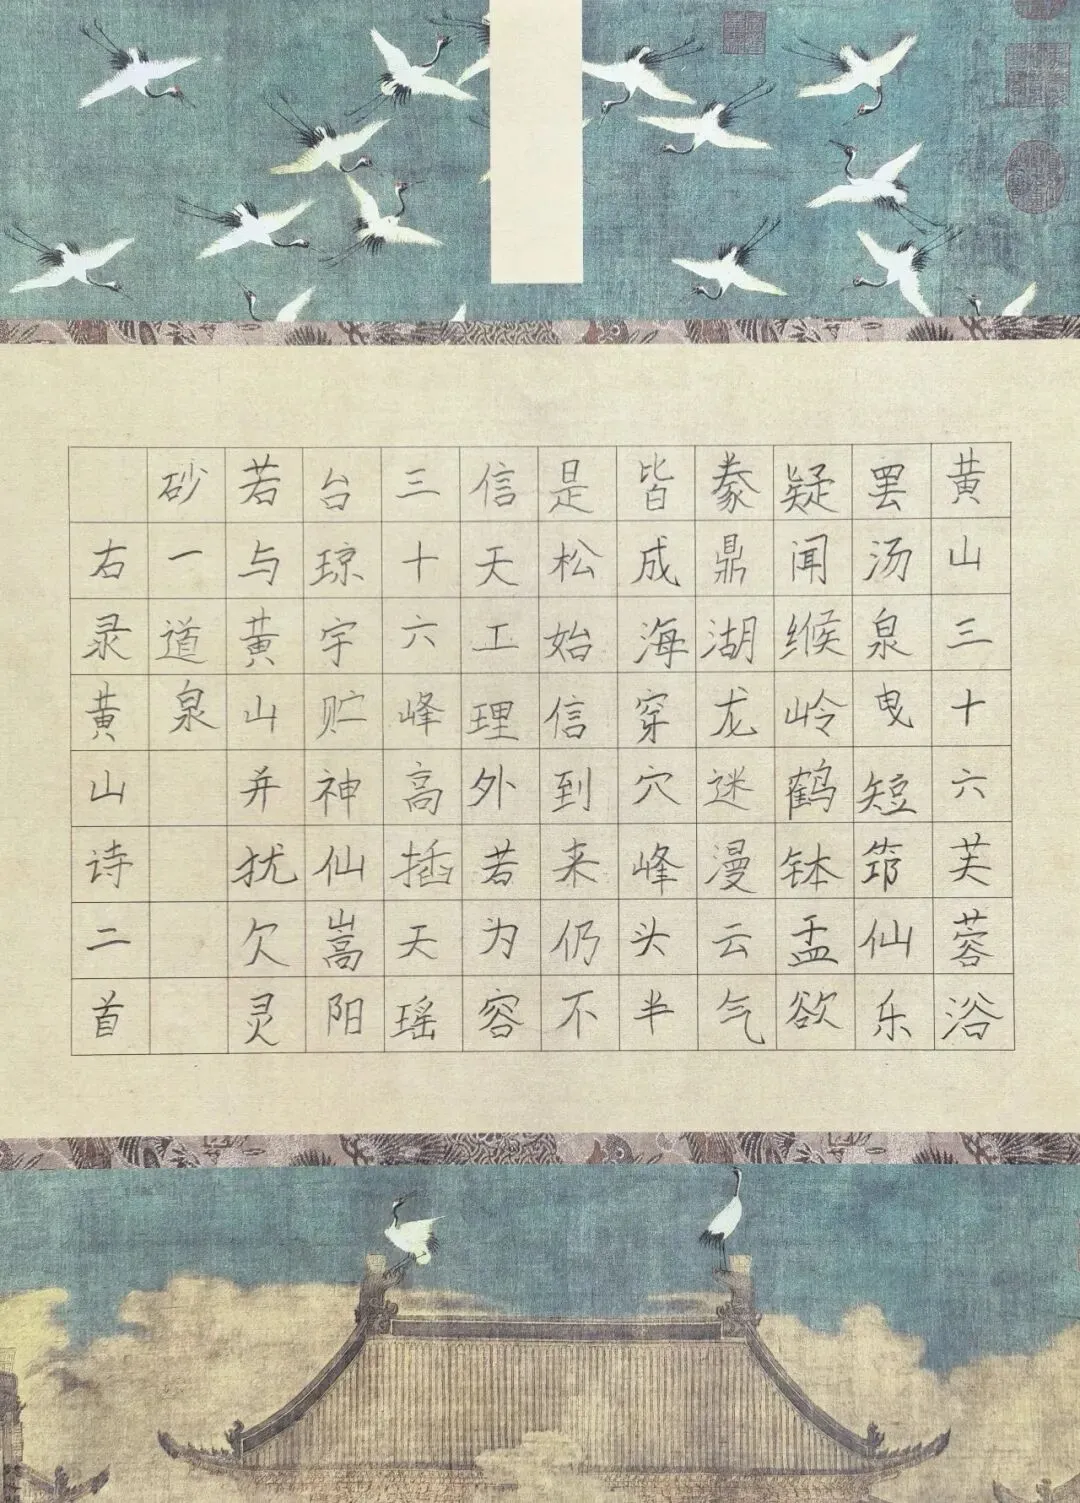 黄山三十六芙蓉浴
罢汤泉曳短筇仙乐
疑闻缑岭鹤钵盂欲
豢鼎湖龙迷漫云气
皆成海穿穴峰头半
是松始信到来仍不
信天工理外若为容
三十六峰高插天瑶
台琼宇贮神仙嵩阳
若与黄山并扰欠灵
砂一道泉
右录黄山诗二首